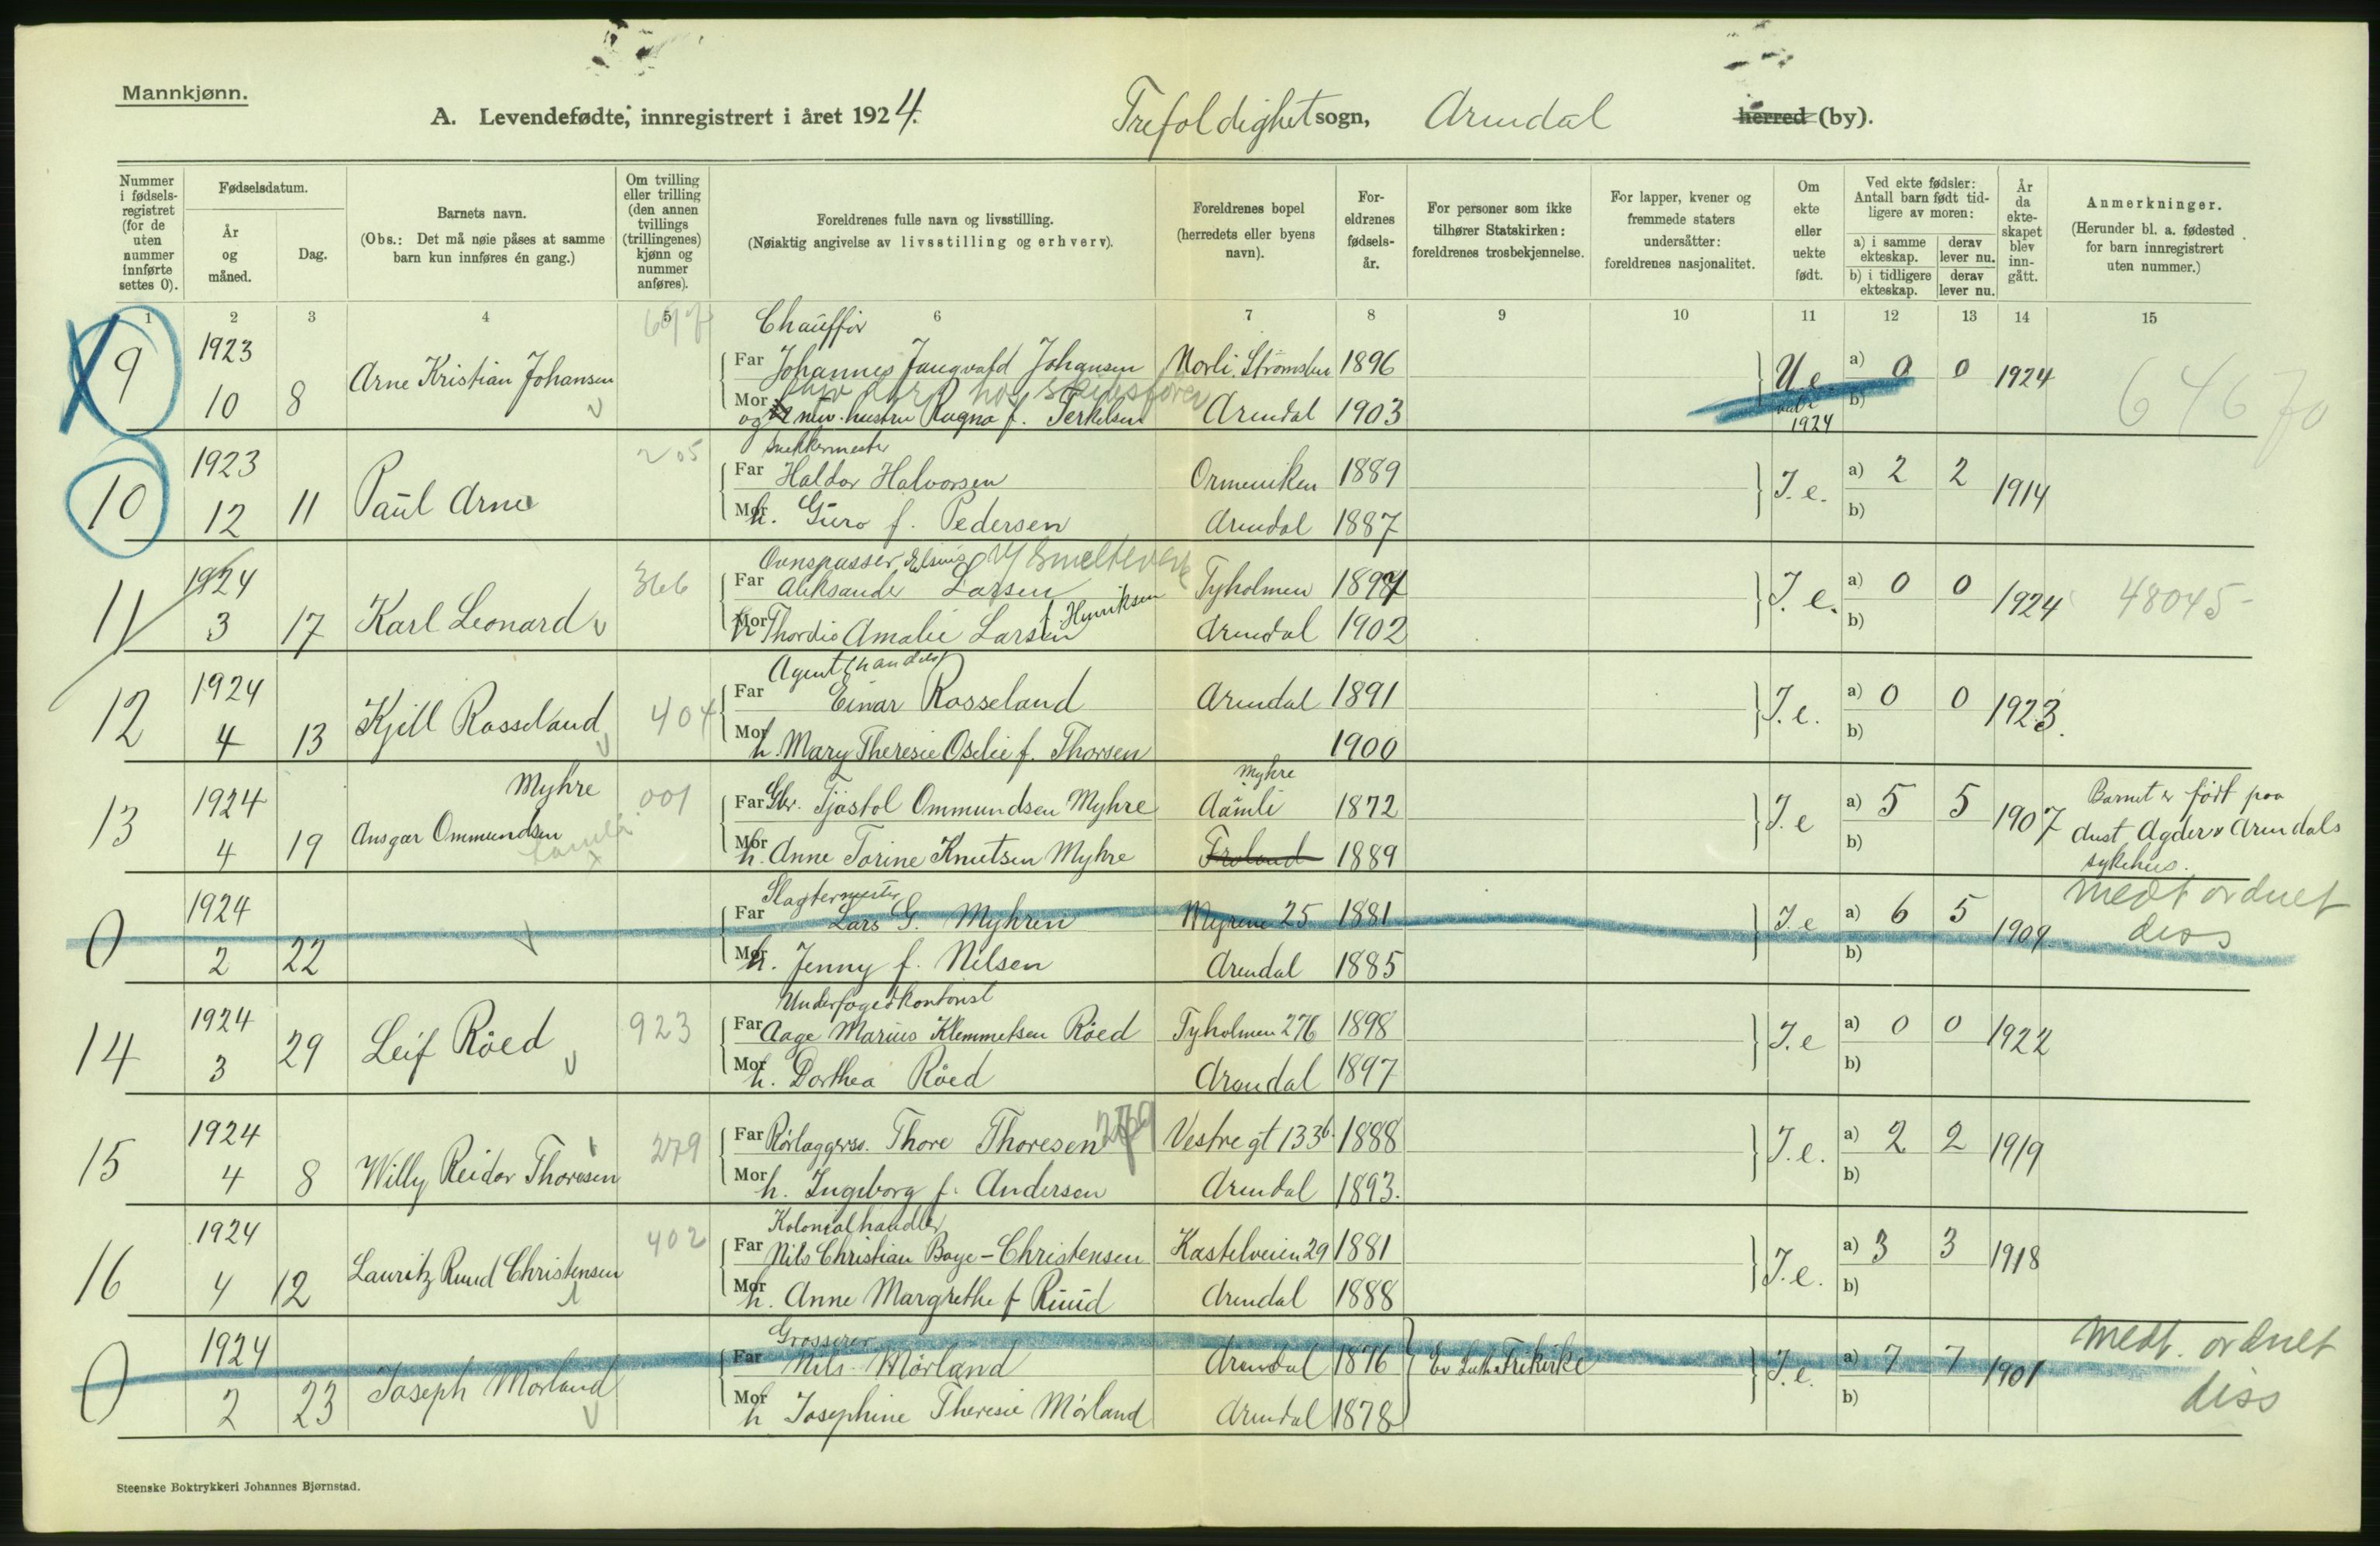 Mannkjønn.
A. Levendefødte, innregistrert i året 1924.
Trefoldighet sogn, Arendal herred (by).
Nummer i fødsels-registret (for de uten nummer innførte settes 0).
Fødselsdatum.
År og måned.
Dag.
Barnets navn.
(Obs.: Det må nøie påses at samme barn kun innføres én gang.)
Om tvilling eller trilling (den annen tvillings (trillingenes) kjønn og nummer anføres).
Foreldrenes fulle navn og livsstilling.
(Nøiaktig angivelse av livsstilling og erhverv).
Foreldrenes bopel (herredets eller byens navn).
For-eldrenes fødsels-år.
For personer som ikke tilhører Statskirken: foreldrenes trosbekjennelse.
For lapper, kvener og fremmede staters undersåtter: foreldrenes nasjonalitet.
Om ekte eller uekte født.
Ved ekte fødsler: Antall barn født tid-ligere av moren:
a) i samme ekteskap.
derav lever nu.
b) i tidligere ekteskap.
derav lever nu.
År da ekte-skapet blev inn-gått.
Anmerkninger.
(Herunder bl. a. fødested for barn innregistrert uten nummer.)
1 2 3 4 5 6 7 8 9 10 11 12 13 14 15
Chauffør
9 1923 10 8 Arne Kristian Johansen
Far Johannes Ingvald Johansen Norli. Strømsbu 1896 U.e. a) 0 0 1924 64670
Mor og nuv. hustru Ragna f. Terkelsen Arendal 1903 b)
1924
Snekkermester
10 1923 12 11 Paul Arne 205
Far Haldor Halvorsen 1889 I.e. a) 2 2 1914
Mor h. Guro f. Pedersen Arendal 1887 b)
Ovnspasser Smelteverk
11 1924 3 17 Karl Leonard 366
Far Aleksander Larsen Tyholmen 1897 I.e. a) 0 0 1924 48045
Mor h. Thordis Amalie Larsen f. Henriksen Arendal 1902 b)
Agent (handels)
12 1924 4 13 Kjell Rosseland 404
Far Einar Rosseland Arendal 1891 I.e. a) 0 0 1923.
Mor h. Mary Theresie Oselie f. Thorsen 1900 b)
13 1924 4 19 Ansgar Ommundsen Myhre 001
Far Gbr. Tjøstol Ommundsen Myhre Myhre Aamli 1872 I.e a) 5 5 1907 Barnet er født paa
Mor h. Anne Torine Knutsen Myhre Froland 1889 b) Aust Agder & Arendals
sykehus.
Slagtermester
0 1924 2 22
Far Lars G. Myhren Myrene 25 1881 I.e a) 6 5 1909 Medt ordnet
Mor h. Jenny f. Nilsen Arendal 1885 b) diss
Underfogedkontorist
14 1924 3 29 Leif Røed 923
Far Aage Marius Klemmetsen Røed Tyholmen 276 1898 I.e a) 0 0 1922
Mor h. Dorthea Røed Arendal 1897 b)
15 1924 4 8 Willy Reidar Thoresen 279
Far Rørlæggersv. Thore Thoresen 279 Vestregt 133b. 1888 I.e. a) 2 2 1919
Mor h. Ingeborg f. Andersen Arendal 1893. b)
Kolonialhandler
16 1924 4 12 Lauritz Ruud Christensen 402
Far Nils Christian Boye-Christensen Kastelveien 29 1881 I.e. a) 3 3 1918
Mor h. Anne Margrethe f Ruud Arendal 1888 b)
Grosserer
0 1924 2 23 Joseph Mørland
Far Nils Mørland Arendal 1876 Ev Luth. Frikirke I.e. a) 7 7 1901 Medt. ordnet
Mor h Josephine Theresie Mørland Arendal 1878 b) diss
Steenske Boktrykkeri Johannes Bjørnstad.